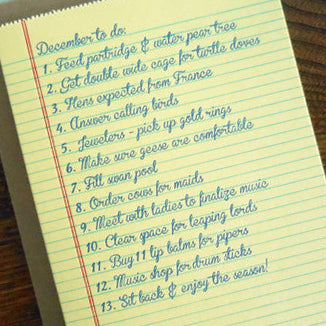 December to do:
1. Feed partridge & water pear tree
2. Get double wide cage for turtle doves
3. Hens expected from France
4. Answer calling birds
5. Jewelers - pick up gold rings
6. Make sure geese are comfortable
7. Fill swan pool
8. Order cows for maids
9. Meet with ladies to finalize music
10. Clear space for leaping lords
11. Buy 11 lip balms for pipers
12. Music shop for drum sticks
13. Sit back & enjoy the season!